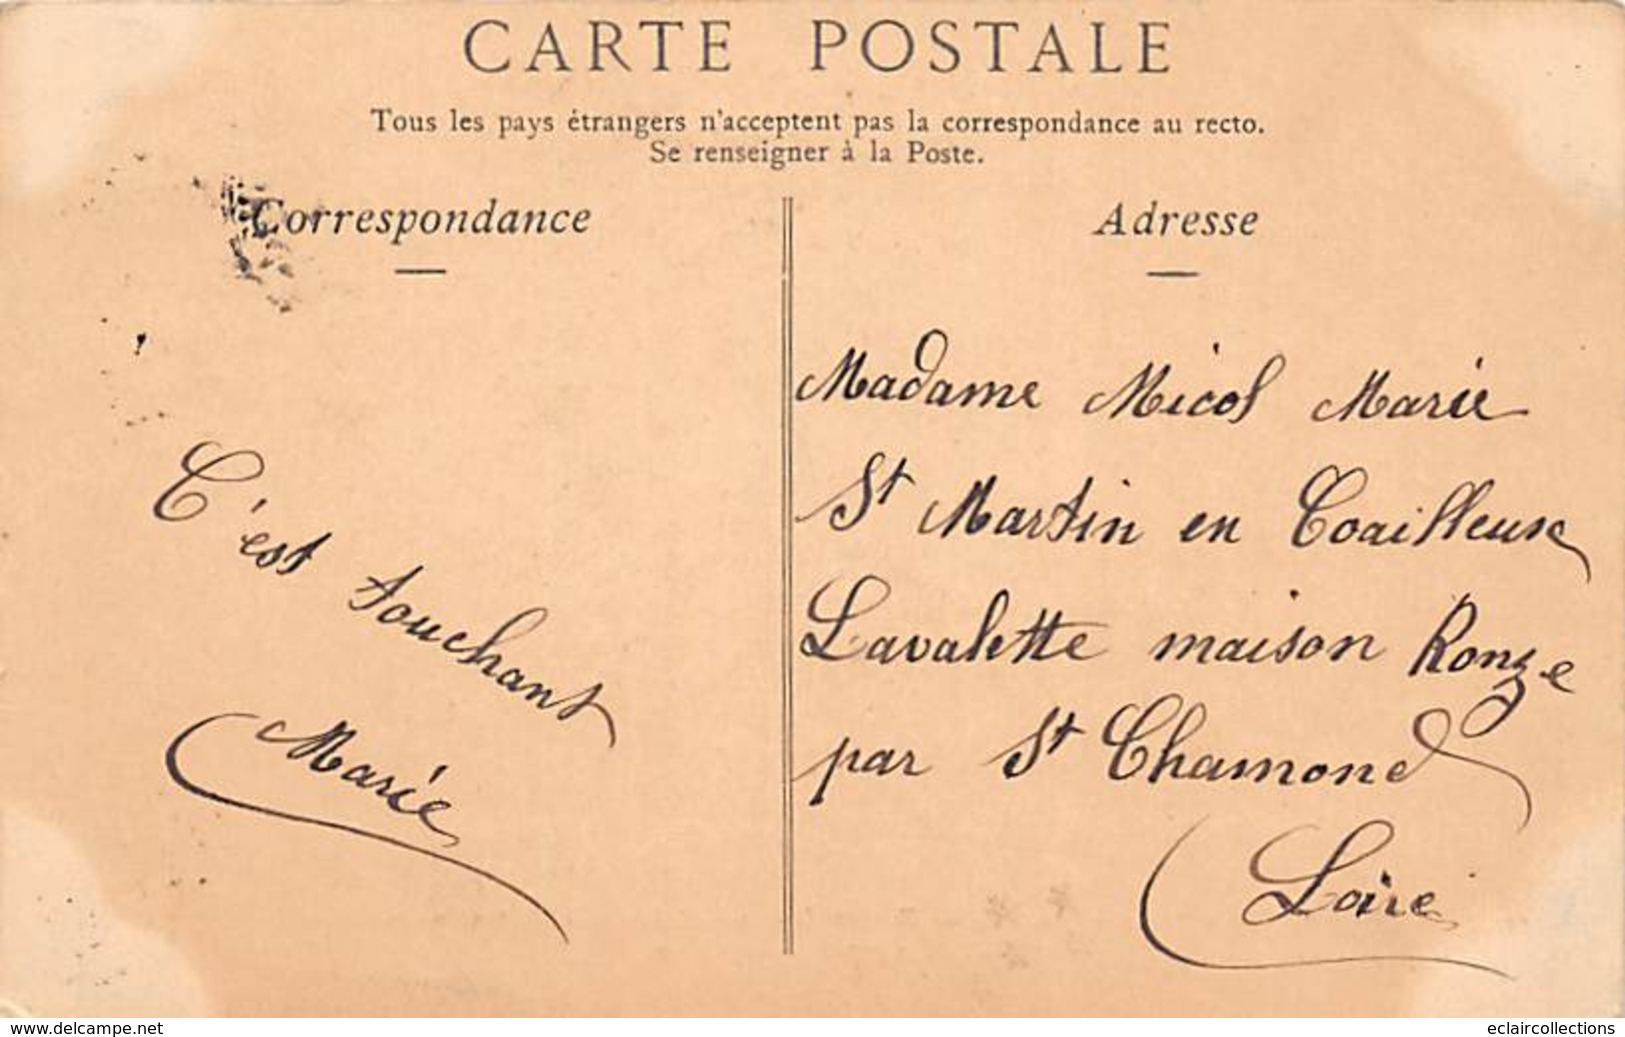 CARTE POSTALE
Tous les pays étrangers n'acceptent pas la correspondance au recto.
Se renseigner à la Poste.
Correspondance
C'est touchant
Marie
Adresse
Madame Micol Marie
St Martin en Coailleuse
Lavalette maison Ronze
par St Chamond
Loire
www.delcampe.net
eclaircollections